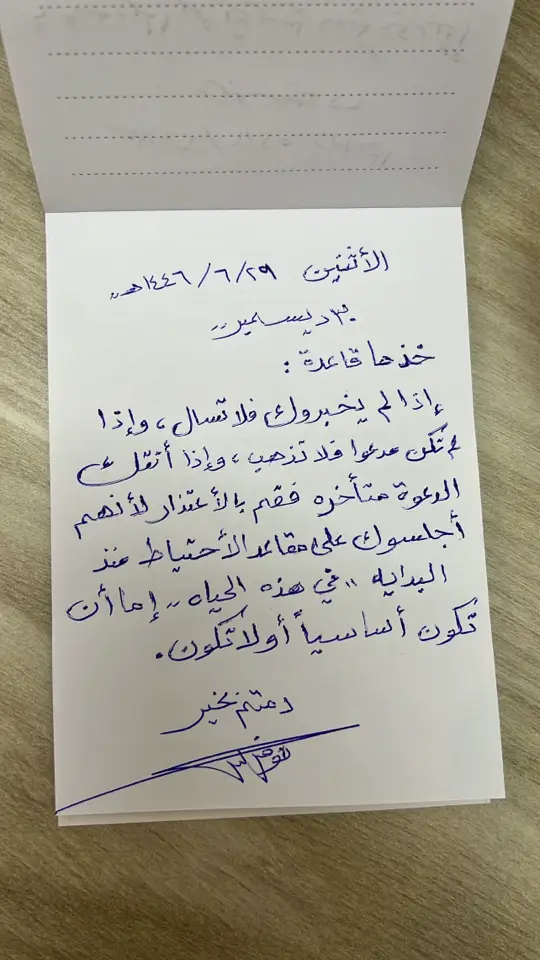 الأثنين ٢٩/٦/١٤٤٦هـ،،
٣٠ ديسمبر،،
خذها قاعدة :
إذا لم يخبروك فلا تسأل، وإذا
لم تكن مدعوا فلا تذهب، وإذا أتتك
الدعوة متأخره فقم بالأعتذار لأنهم
أجلسوك على مقاعد الأحتياط منذ
البدايه ،، في هذه الحياه ،، إما أن
تكون أساسياً أو لا تكون.
دمتم بخير